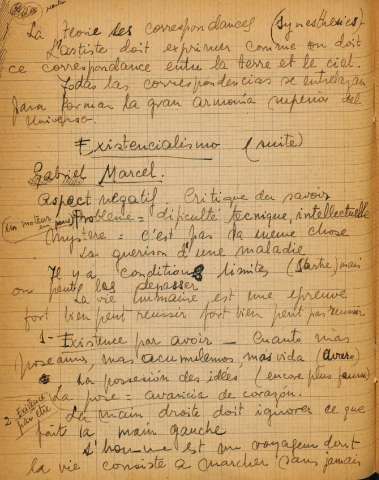 La téorie des correspondances (Synesthésies)
L'artiste doit exprimer comme on doit
ce correspondance entre la terre et le ciel.
Todas las correspondencias se entrelazan
para formar la gran armonía superior del
Universo.
Existencialismo (suite)
Gabriel Marcel.
Aspect négatif. Critique du savoir
Problème = dificulté technique, intellectuelle
Mystère = c'est pas la même chose
La guérison d'une maladie
Il y a conditions limites (Sartre) jamais
on peut las dépasser
La vie humaine est une épreuve
fort bien peut réussir fort bien peut pas réussir
1 - Existence par avoir - Cuanto más
poseamos, mas acumulemos, mas vida (avare)
La possesion des idées (encore plus jaune)
La pose = avaricia de corazón.
2 Existence par être
La main droite doit ignorer ce que
fait la main gauche
L'homme est un voyageur dont
la vie consiste a marcher sans jamais